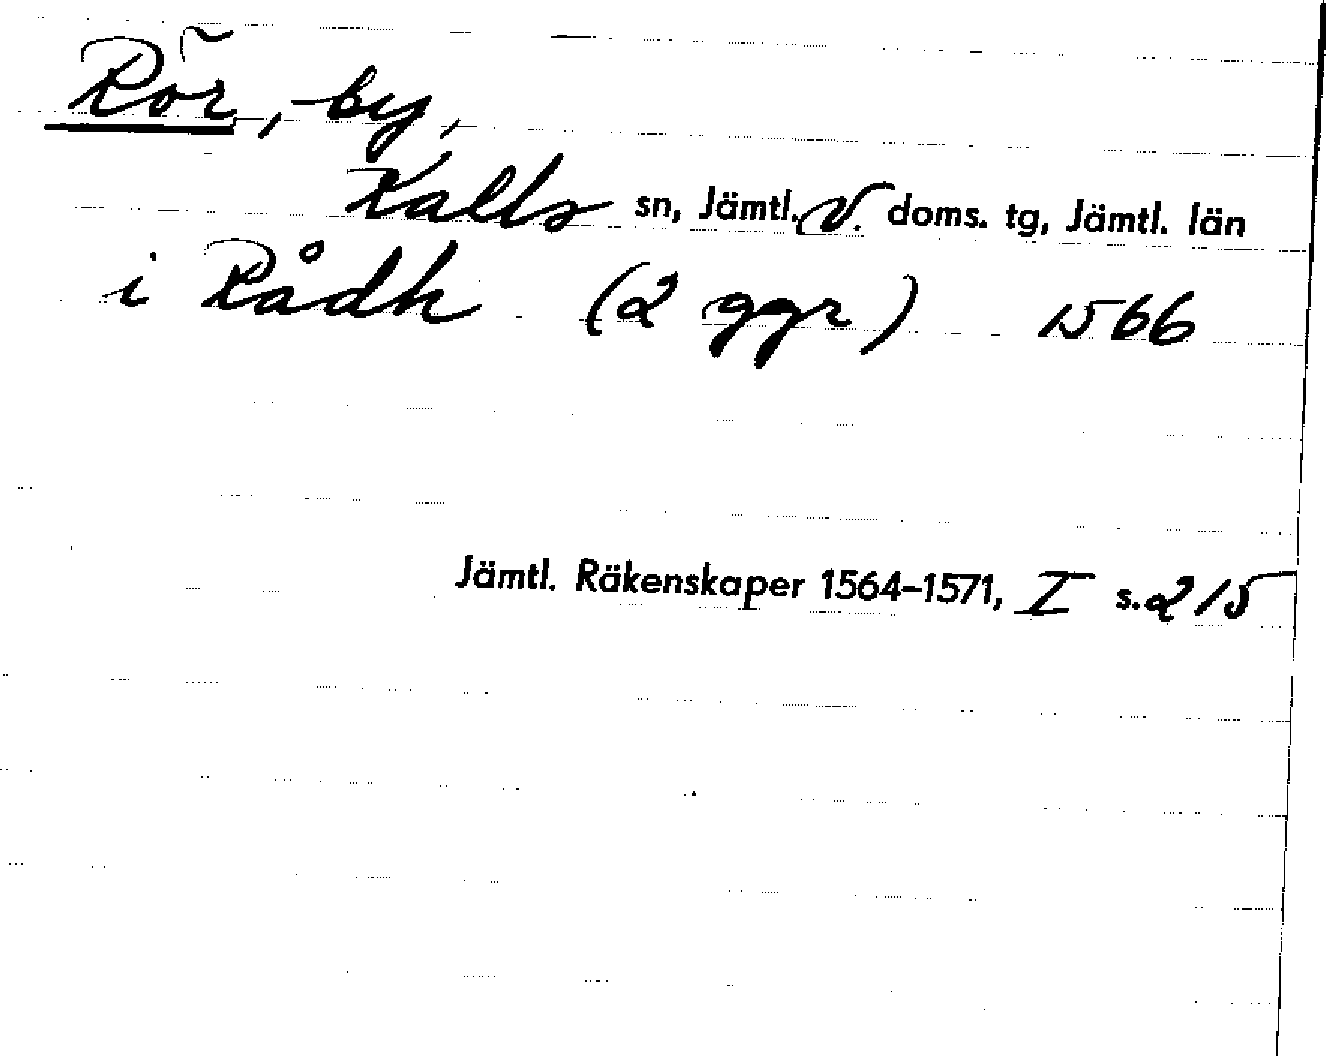 Rör, by,
Kalls sn, Jämtl. V. doms. tg, Jämtl. län
i Rådh (2 ggr) 1566
Jämtl. Räkenskaper 1564-1571, I s. 215